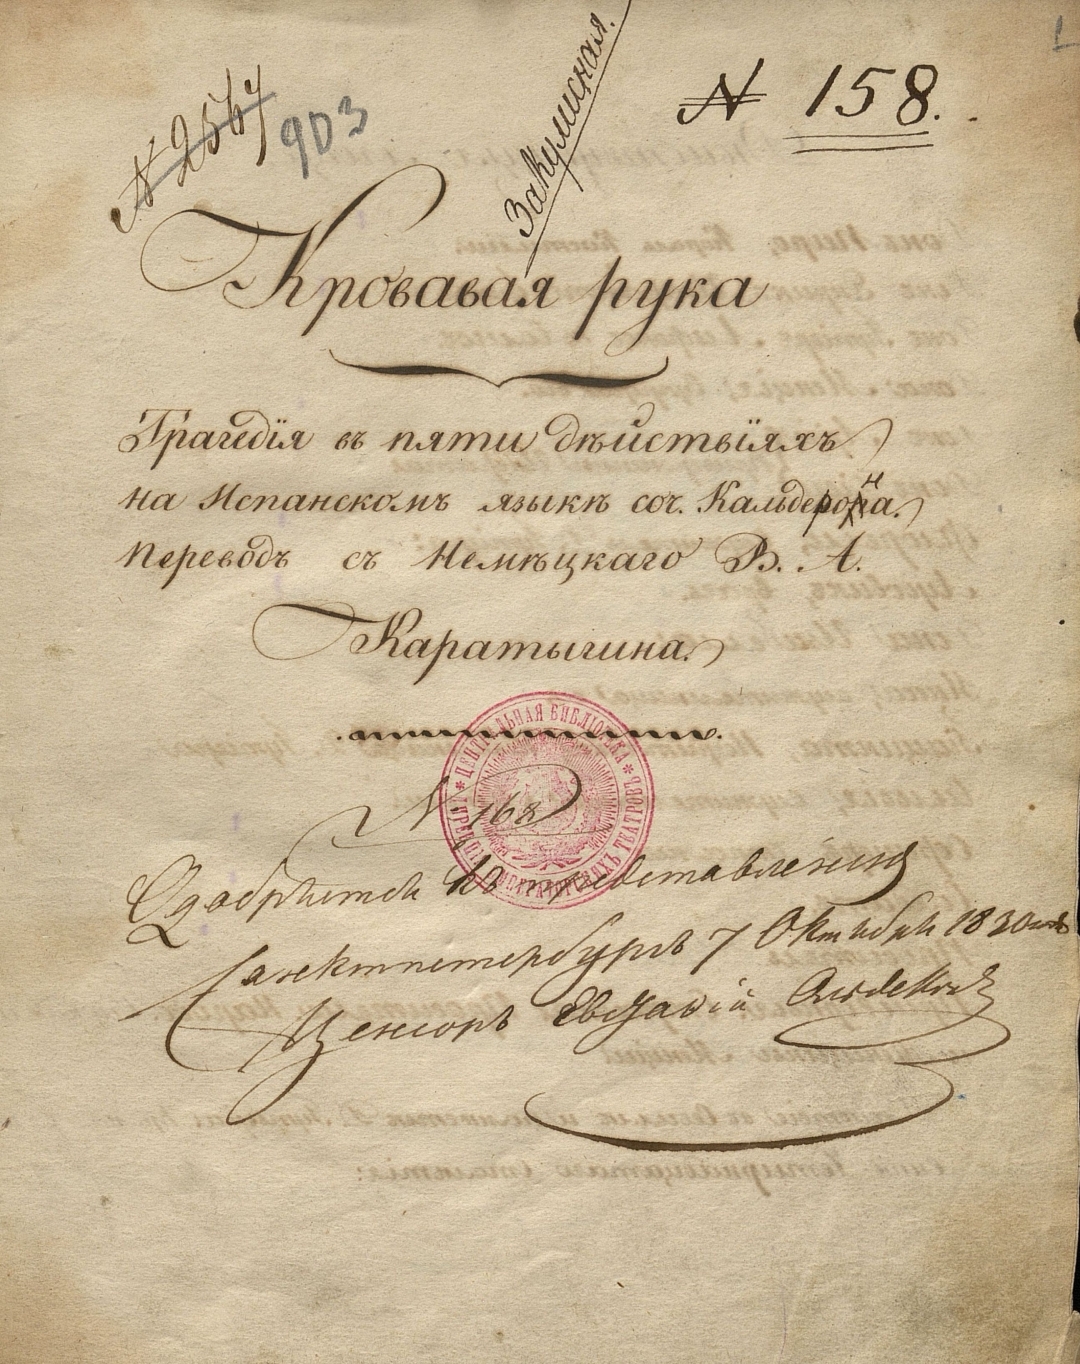 № 2564
903
Закулисная.
№ 158.
Кровавая рука
Трагедія въ пяти дѣйствіяхъ
на Испанскомъ языкѣ соч. Кальдерона.
Переводъ съ Нѣмецкаго В. А.
Каратыгина.
ЦЕНТРАЛЬНАЯ БИБЛІОТЕКА
ИМПЕРАТОРСКИХЪ ТЕАТРОВЪ
№ 168
Одобряется къ представленію
Санктпетербургъ 7 Октября 1830 года
Цензоръ Евстафій Ольдекопъ